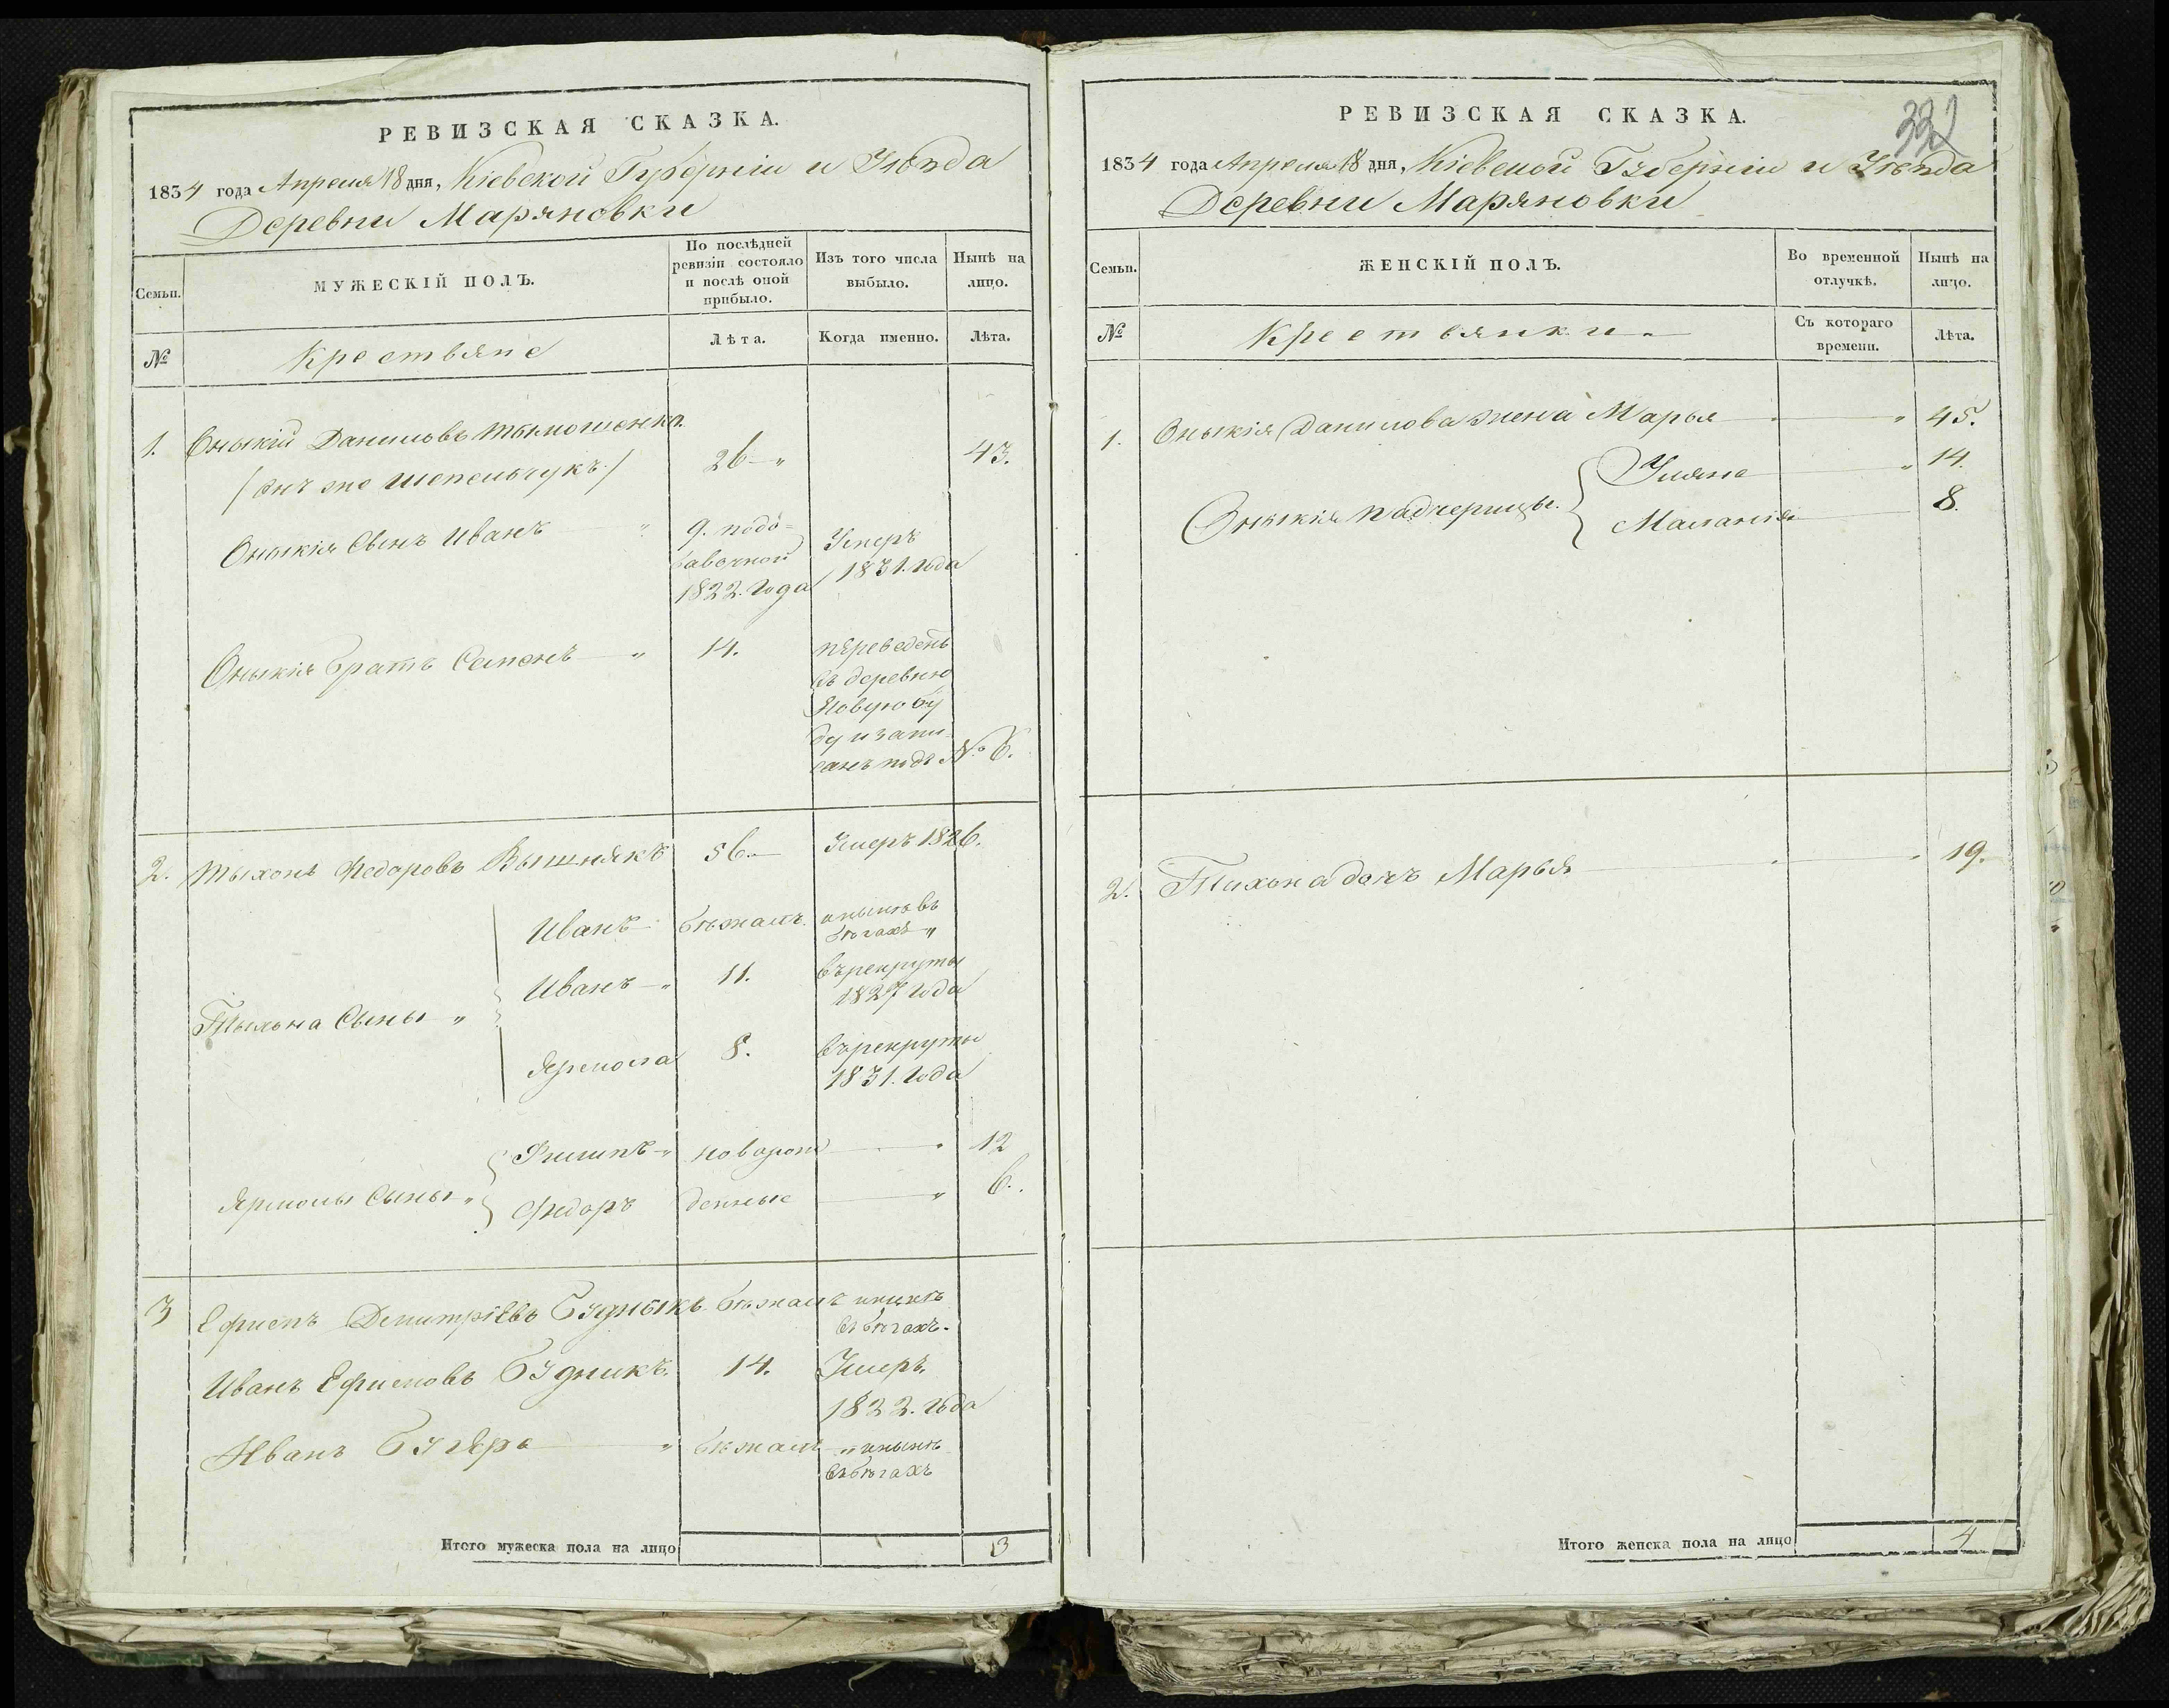 РЕВИЗСКАЯ СКАЗКА.
1834 года Апреля 18 дня, Кіевской Губерніи и Уѣзда
Деревни Маряновки
Семьи.
МУЖЕСКІЙ ПОЛЪ.
По послѣдней ревизіи состояло и послѣ оной прибыло.
Изъ того числа выбыло.
Нынѣ на лицо.
№
Крестьяне
Лѣта.
Когда именно.
Лѣта.
1. Оныкій Даниловъ
(онъ же Шепельчукъ) 26 43.
Оныкія Сынъ Иванъ 9. подо=
бавочной
1822. Года
Умеръ
1831. Года
Оныкія братъ Семенъ 14. переведенъ
въ деревню
Новую бу
ду и запи-
санъ подъ № 6.
2. Тыхонъ Федоровъ Вышнякъ 56 Умеръ 1826.
Тыхона Сыны
Иванъ бѣжалъ и нынѣ въ
бѣгахъ
Иванъ 11. въ рекруты
1827 Года
Ярмола 8. въ рекруты
1831. Года
Ярмолы Сыны
Филипъ новорож 12
Федоръ денные 6.
3 Ефимъ Демитріевъ Будныкъ бѣжалъ и нынѣ
въ бѣгахъ.
Иванъ Ефимовъ Будникъ. 14. Умеръ
1822. Года
Иванъ бѣжалъ и нынѣ
въ бѣгахъ
Итого мужеска пола на лицо 3
РЕВИЗСКАЯ СКАЗКА.
332
1834 года Апреля 18 дня, Кіевской Губерніи и Уѣзда
Деревни Маряновки
Семьи.
ЖЕНСКІЙ ПОЛЪ.
Во временной отлучкѣ.
Нынѣ на лицо.
№
Крестьянки
Съ котораго времени.
Лѣта.
1. Оныкія Данилова жена Марья 45.
Оныкія падчерицы.
Уляна 14.
Маланія 8.
2. Тихона дочъ Марья 19.
Итого женска пола на лицо 4